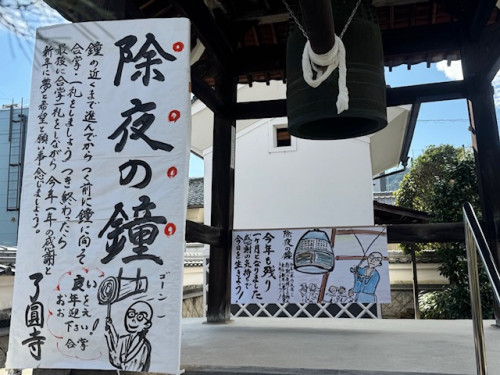 除夜の鐘
鐘の近くまで進んでからつく前に鐘に向って
合掌一礼をしましょう つき終わったら
最後に合掌一礼をしながら今年一年の感謝と
新年に夢と希望と願い事を念じましょう。
ゴーン
良い
お年を
お迎え
下さい
合掌
了圓寺
除夜の鐘
今年も残り
一ヶ月となりました。
感謝の気持で
今日を生きよう!